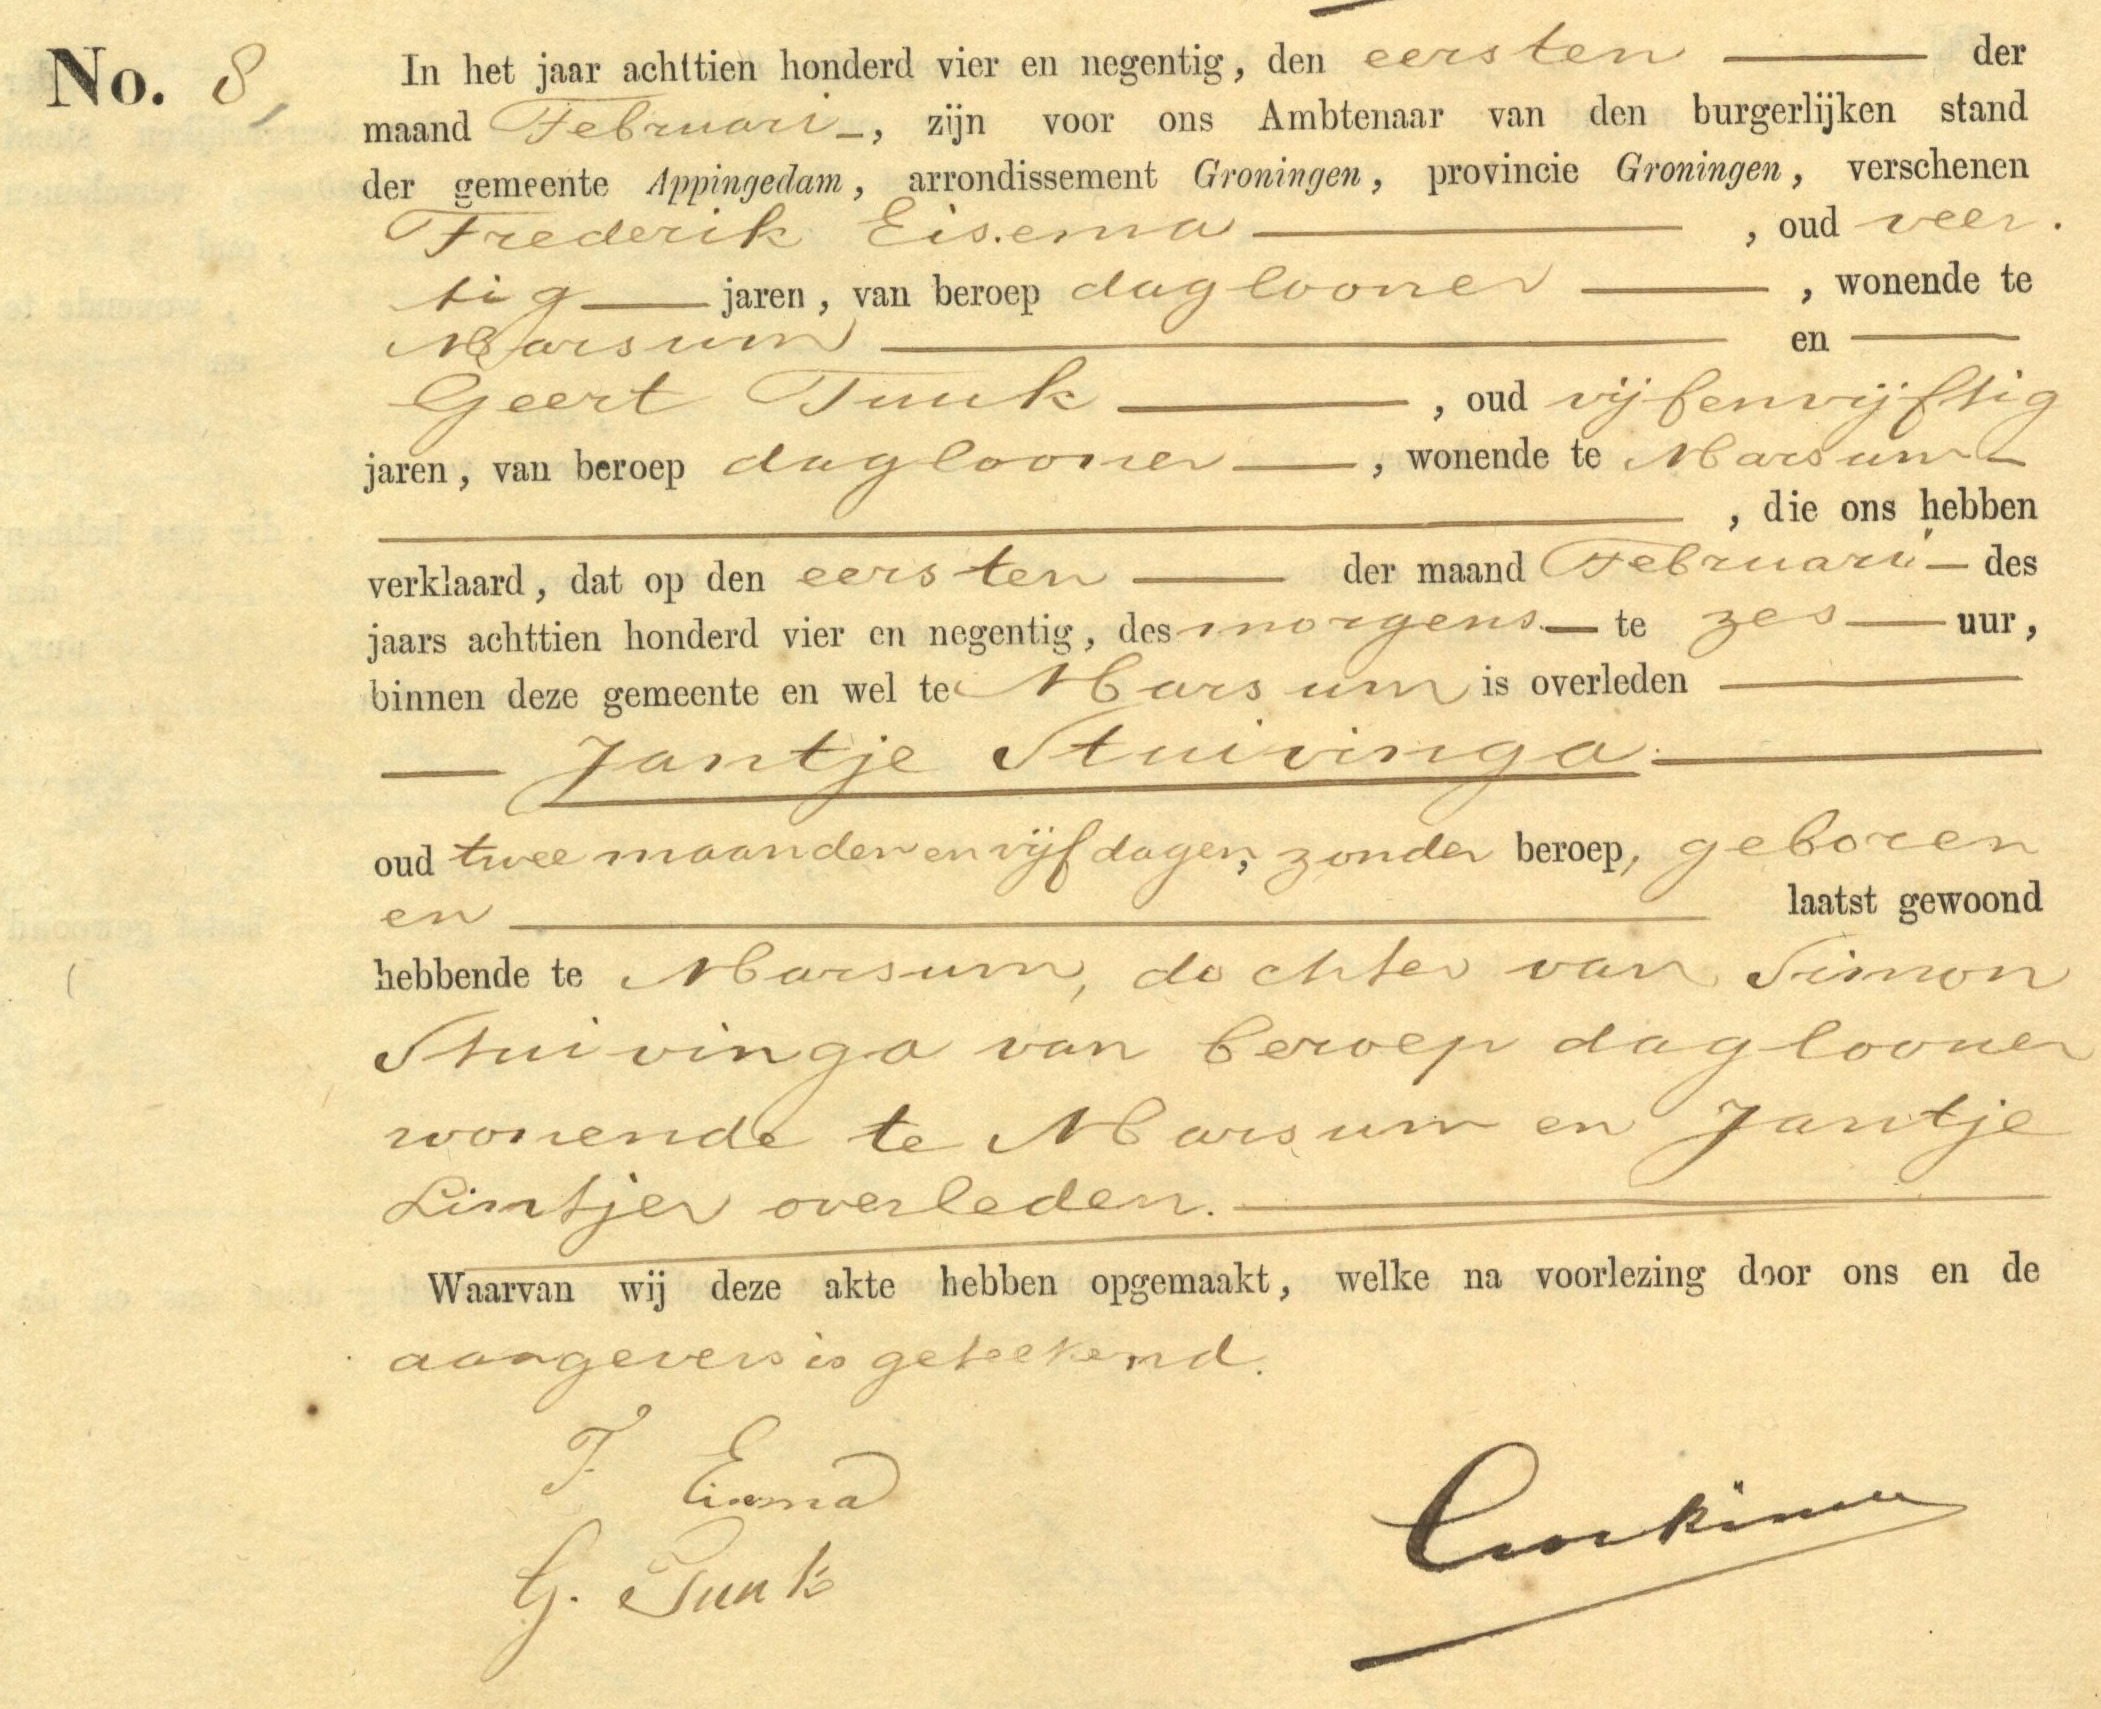 No. 8,
In het jaar achttien honderd vier en negentig, den eersten — der
maand Februari —, zijn voor ons Ambtenaar van den burgerlijken stand
der gemeente Appingedam, arrondissement Groningen, provincie Groningen, verschenen
Frederik Eisema —, oud veer
tig — jaren, van beroep daglooner —, wonende te
Marsum — en —
Geert Tuuk —, oud vijfenvijftig
jaren, van beroep daglooner —, wonende te Marsum —
—, die ons hebben
verklaard, dat op den eersten — der maand Februari — des
jaars achttien honderd vier en negentig, des morgens — te zes — uur,
binnen deze gemeente en wel te Marsum is overleden —
— Jantje Stuivinga. —
oud twee maanden en vijf dagen, zonder beroep, geboren
en — laatst gewoond
hebbende te Marsum, dochter van Simon
Stuivinga van beroep daglooner
wonende te Marsum en Jantje
Lintjer overleden. —
Waarvan wij deze akte hebben opgemaakt, welke na voorlezing door ons en de
aangevers is geteekend.
F. Eisema
G. Tuuk